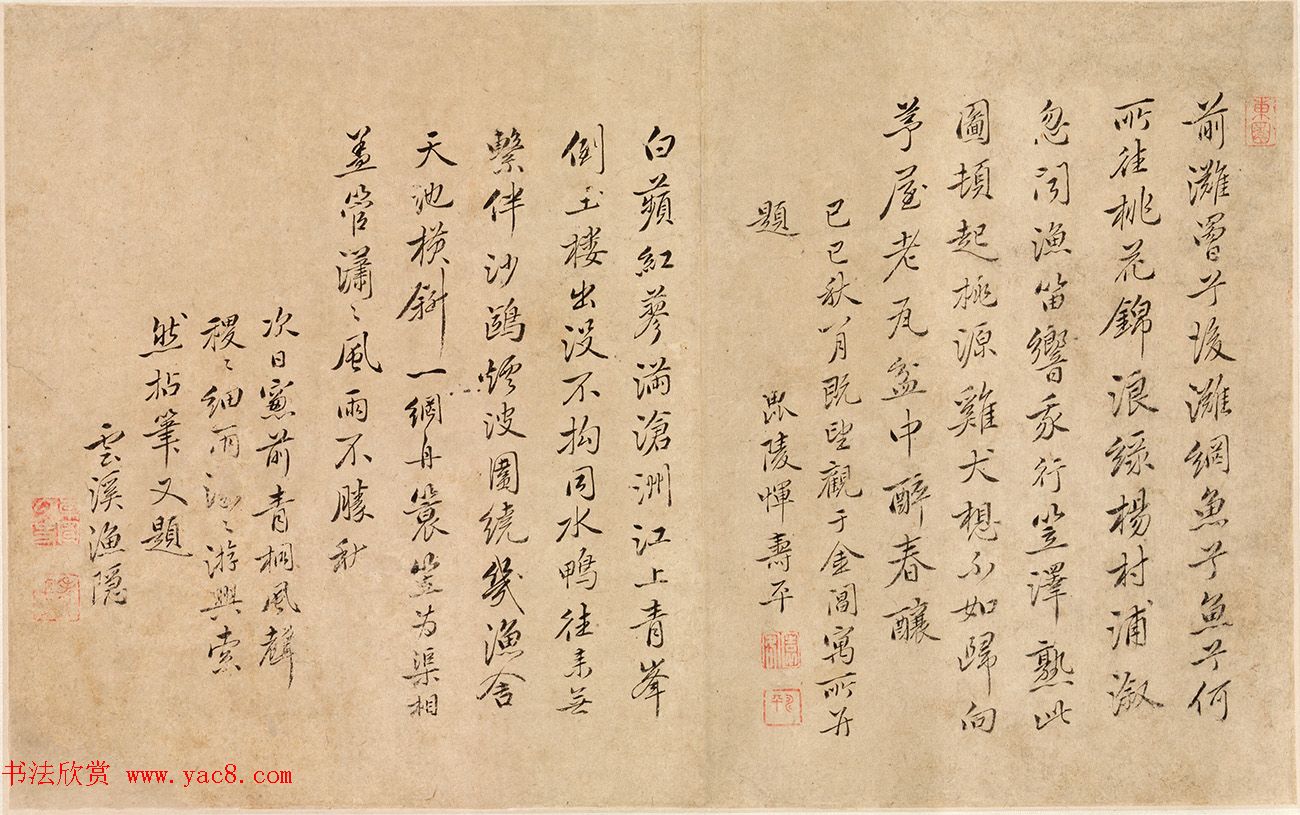 前灘罾兮後灘網魚兮魚兮何
所往桃花錦浪綠楊村浦漵
忽聞漁笛響我行笠澤熟此
圖頓起桃源雞犬想不如歸向
茅屋老瓦盆中醉春釀
己巳秋八月既望觀于金閶寓所并
題 毘陵惲壽平
白蘋紅蓼滿滄洲江上青峯
倒玉樓出沒不拘同水鴨往来無
繫伴沙鷗煙波圍繞幾漁舍
天地橫斜一網舟簑笠为渠相
蓋管瀟〻風雨不勝秋
次日窻前青桐風聲
稷〻細雨泥〻游興索
然拈筆又題
雲溪漁隱
书法欣赏 www.yac8.com